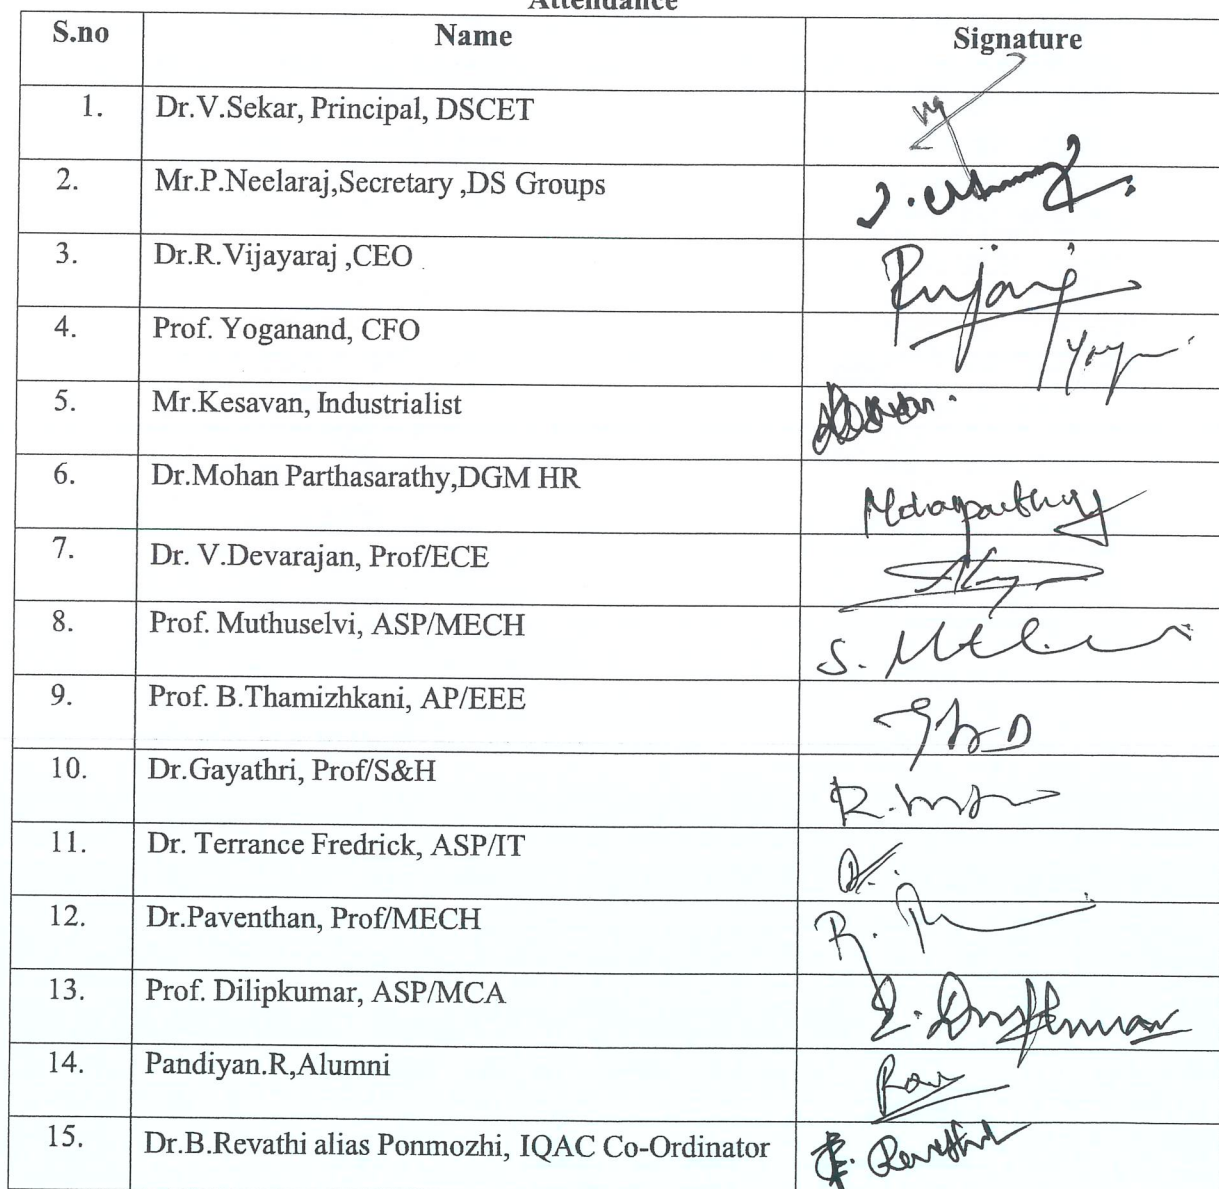 Attendance
S.no Name Signature
1. Dr.V.Sekar, Principal, DSCET
2. Mr.P.Neelaraj,Secretary ,DS Groups
3. Dr.R.Vijayaraj ,CEO
4. Prof. Yoganand, CFO
5. Mr.Kesavan, Industrialist
6. Dr.Mohan Parthasarathy,DGM HR
7. Dr. V.Devarajan, Prof/ECE
8. Prof. Muthuselvi, ASP/MECH
9. Prof. B.Thamizhkani, AP/EEE
10. Dr.Gayathri, Prof/S&H
11. Dr. Terrance Fredrick, ASP/IT
12. Dr.Paventhan, Prof/MECH
13. Prof. Dilipkumar, ASP/MCA
14. Pandiyan.R,Alumni
15. Dr.B.Revathi alias Ponmozhi, IQAC Co-Ordinator